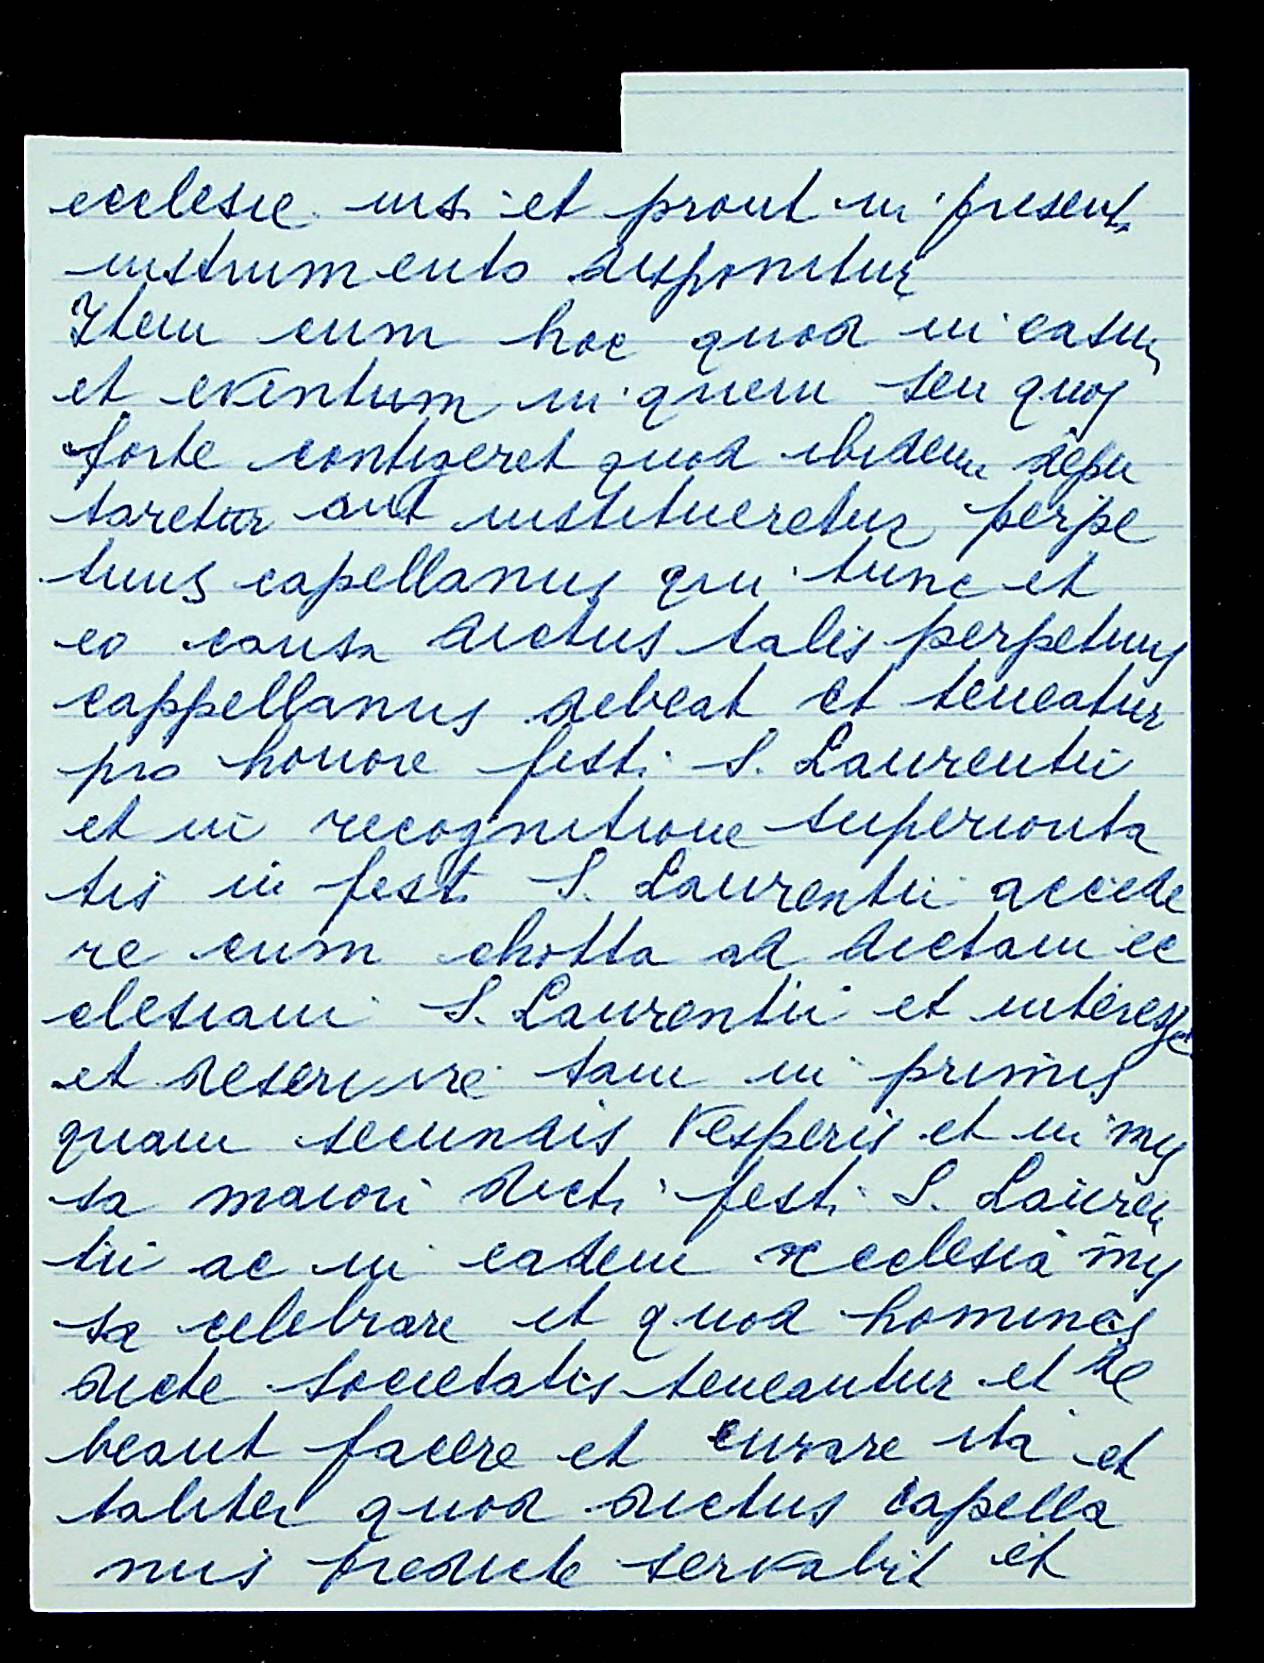 ecclesie ius et prout in presenti
instrumento disponitur
Item cum hoc quod in casum
et eventum in quem seu quos
forte contigeret quod ibidem depu
taretur aut institueretur perpe
tuus capellanus qui tunc et
eo causa dictus talis perpetuus
cappellanus debeat et teneatur
pro honore festi S. Laurentii
et in recognitione superiorita
tis in festi S. Laurentii accede
re cum chotta ad dictam ec
clesiam S. Laurentii et interesse
et deservire tam in primis
quam secundis Vesperis et in mis
sa maiori dicti festi S. Lauren
tii ac in eadem ecclesia mis
sa celebrare et quod homines
dicte societatis teneantur et de
beant facere et curare ita et
taliter quod dictus capella
nus predicte servabit et